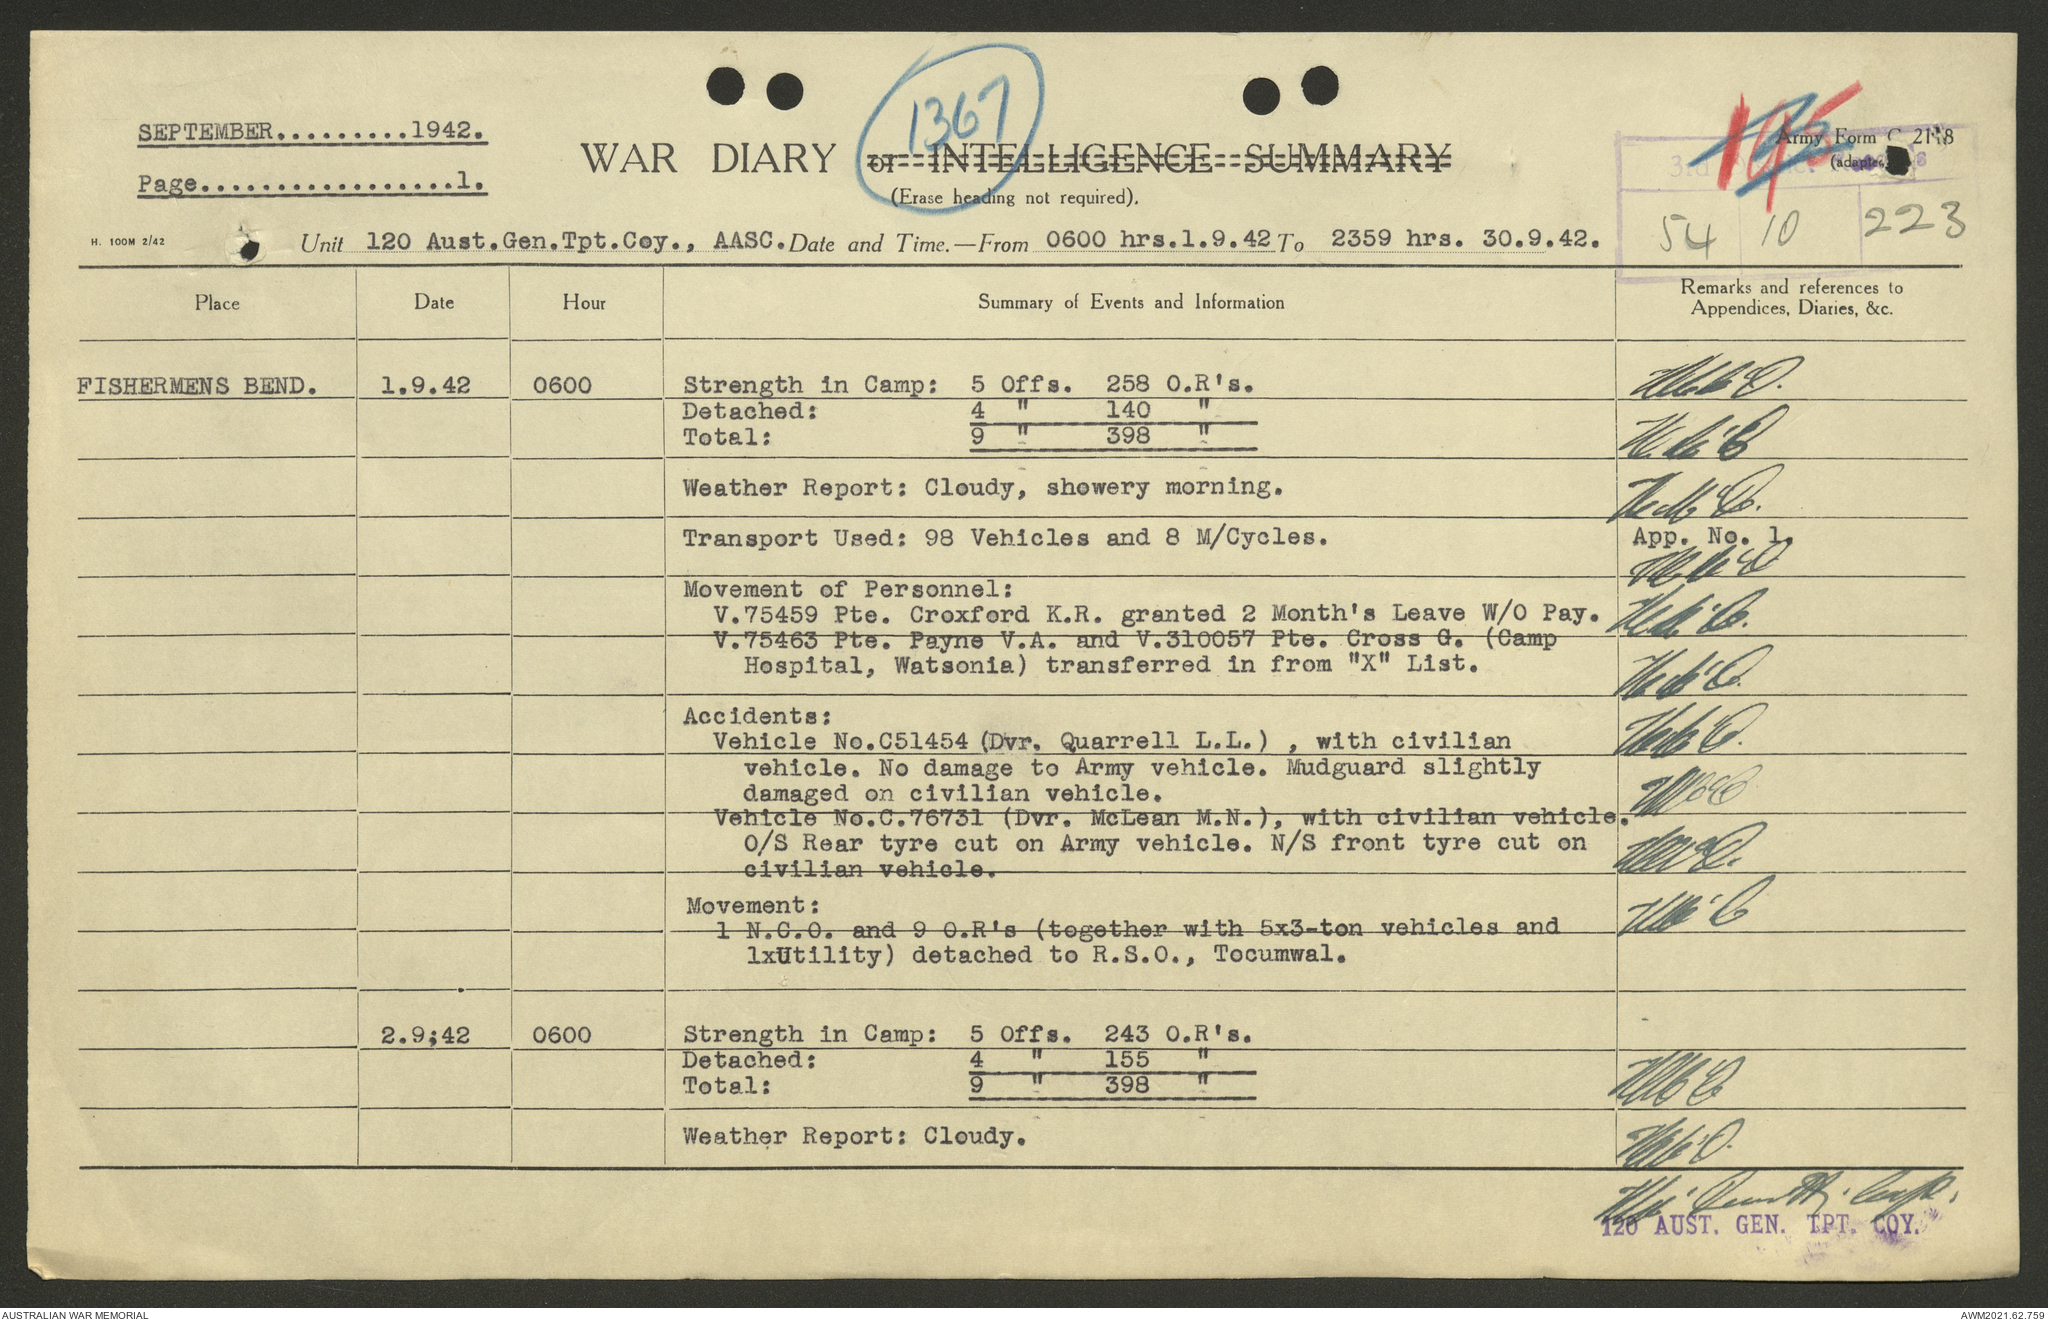 1367
SEPTEMBER.........1942.
Page.................1.
WAR DIARY or INTELLIGENCE SUMMARY
(Erase heading not required).
Army Form C. 2118
54 10 223
H. 100M 2/42
Unit 120 Aust.Gen.Tpt.Coy., AASC. Date and Time.—From 0600 hrs.1.9.42 To 2359 hrs. 30.9.42.
Place Date Hour Summary of Events and Information Remarks and references to
Appendices, Diaries, &c.
FISHERMENS BEND. 1.9.42 0600 Strength in Camp: 5 Offs. 258 O.R's.
Detached: 4 " 140 "
Total: 9 " 398 "
Weather Report: Cloudy, showery morning.
Transport Used: 98 Vehicles and 8 M/Cycles. App. No. 1.
Movement of Personnel:
V.75459 Pte. Croxford K.R. granted 2 Month's Leave W/O Pay.
V.75463 Pte. Payne V.A. and V.310057 Pte. Cross G. (Camp
Hospital, Watsonia) transferred in from "X" List.
Accidents:
Vehicle No.C51454 (Dvr. Quarrell L.L.) , with civilian
vehicle. No damage to Army vehicle. Mudguard slightly
damaged on civilian vehicle.
Vehicle No.C.76731 (Dvr. McLean M.N.), with civilian vehicle.
O/S Rear tyre cut on Army vehicle. N/S front tyre cut on
civilian vehicle.
Movement:
1 N.C.O. and 9 O.R's (together with 5x3-ton vehicles and
1xUtility) detached to R.S.O., Tocumwal.
2.9;42 0600 Strength in Camp: 5 Offs. 243 O.R's.
Detached: 4 " 155 "
Total: 9 " 398 "
Weather Report: Cloudy.
120 AUST. GEN. TPT. COY.
AUSTRALIAN WAR MEMORIAL AWM2021.62.759